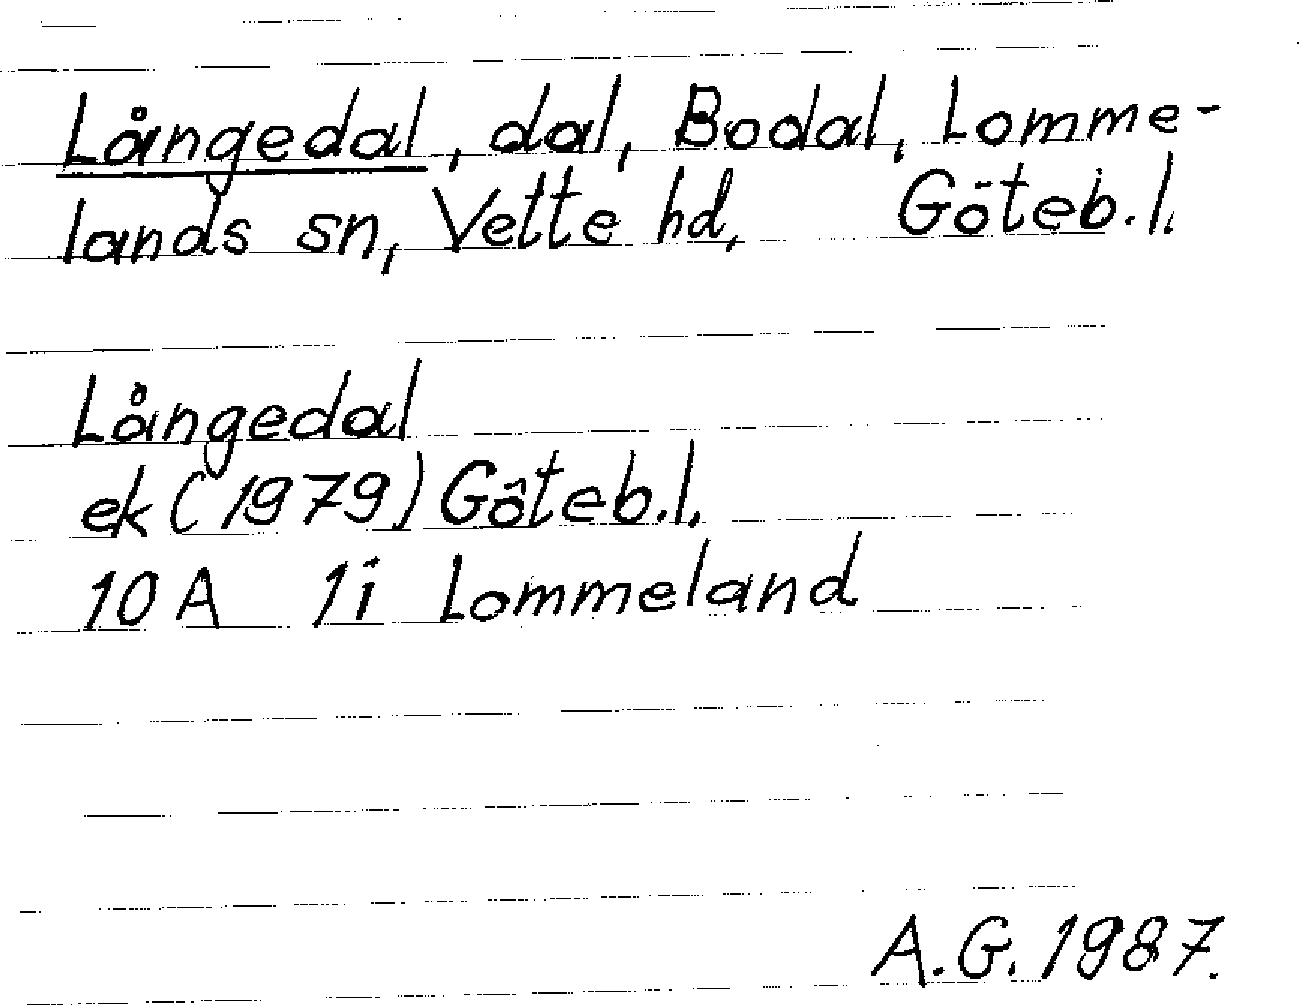 Långedal, dal, Bodal, Lomme-
lands sn, Vette hd, Göteb.l.
Långedal
ek (1979) Göteb.l.
10A 1i Lommeland
A.G. 1987.